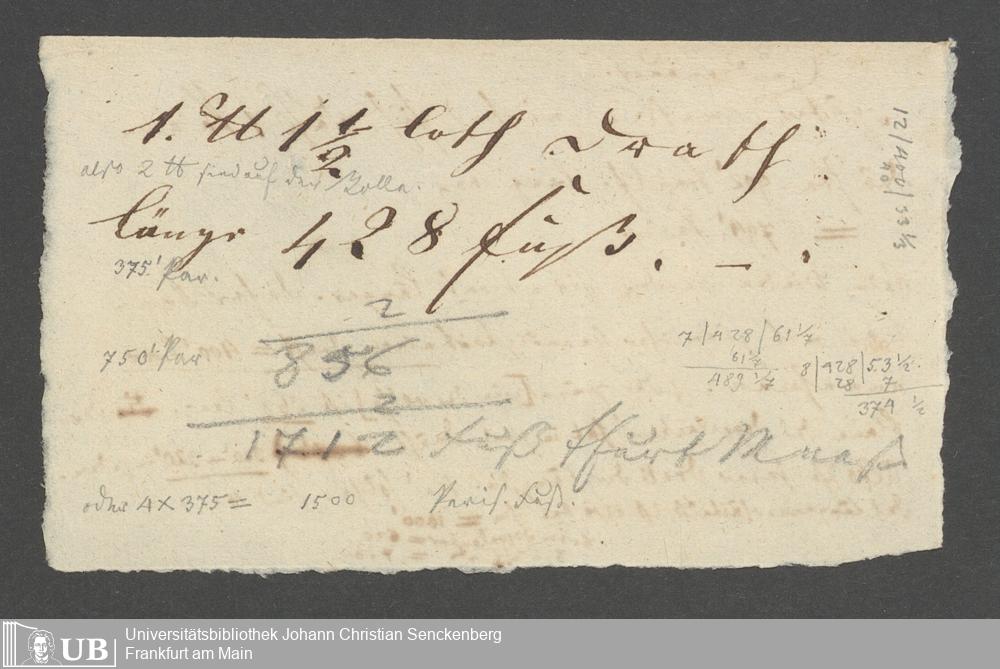 1. ℔ 1 1/2 loth Drath
also 2 ℔ sind auf der Rolle.
länge 428 fuß. – .
375' Par.
2
750' Par
856
2
1712 Fuß Ffurt Maaß
oder 4 x 375 = 1500 Paris. Fuß.
7 | 428 | 61 1/7
61 1/7
489 1/7
8 | 428 | 53 1/2.
28 7
374 1/2
12 / 400 / 33 1/3
40
UB
Universitätsbibliothek Johann Christian Senckenberg
Frankfurt am Main